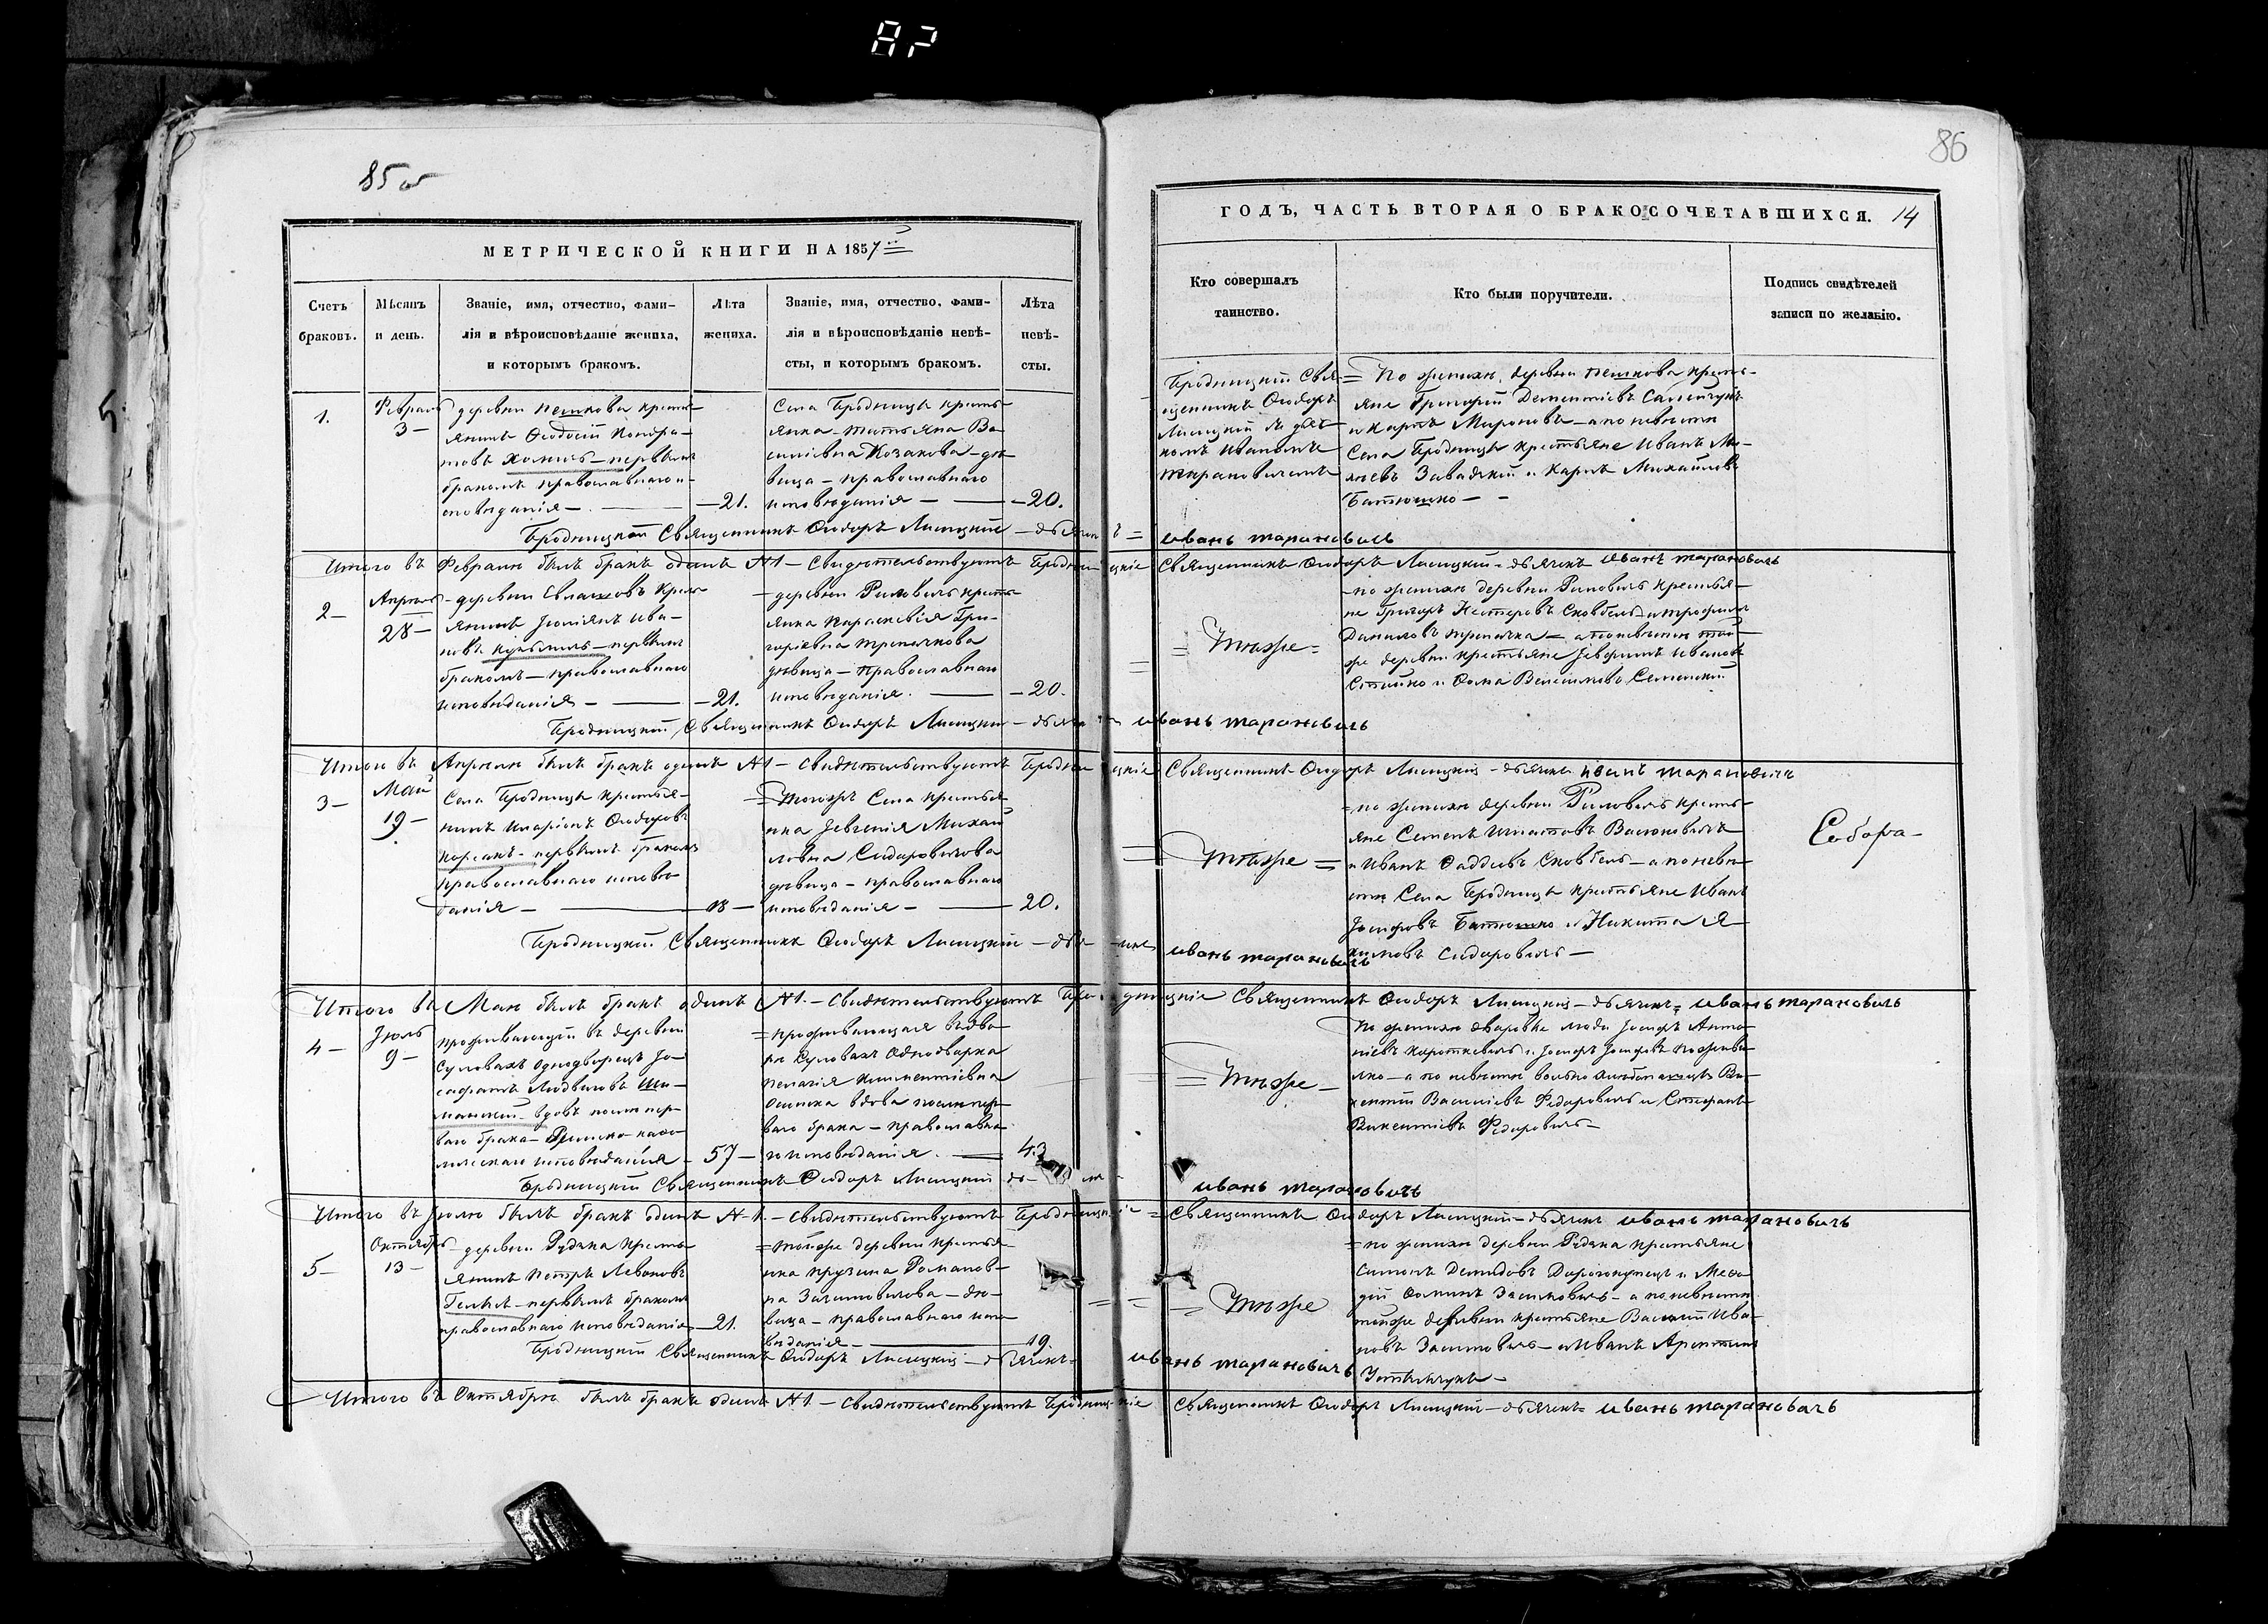 87
85 об
86
МЕТРИЧЕСКОЙ КНИГИ НА 1857
ГОДЪ, ЧАСТЬ ВТОРАЯ О БРАКОСОЧЕТАВШИХСЯ. 14
Счетъ
браковъ.
Мѣсяцъ
и день.
Званіе, имя, отчество, фами-
лія и вѣроисповѣданіе жениха,
и которымъ бракомъ.
Лѣта
жениха.
Званіе, имя, отчество, фами-
лія и вѣроисповѣданіе невѣ-
сты, и которымъ бракомъ.
Лѣта
невѣ-
сты.
Кто совершалъ
таинство.
Кто были поручители.
Подпись свидѣтелей
записи по желанію.
1.
Февраль
3 –
деревни Пешкова кресть-
янинъ Ѳеодосій Кондра-
товъ – первымъ
бракомъ православнаго и-
споведанія –
– 21.
Села Бродницы кресть-
янка – Татьяна Ва-
силіевна Козакова – дѣ-
вица – православнаго
исповѣданія –
– 20.
Бродницкій Свя-
щенникъ Ѳеодоръ
Лисицкій дья-
комъ Иваномъ
Тарановичемъ
= По женихѣ, деревни Пешкова кресть-
яне Григорій Дементіевъ
и Карпъ Мироновъ – а по невѣсти
Села Бродницы крестьяне Иванъ
Завадскій и Карпъ Михайловъ
Батюшко –
Бродницкій Священникъ Ѳеодоръ Лисицкій – дьячекъ = иванъ тарановичъ
Итого въ Февралѣ былъ бракъ одинъ №1 – Свидѣтельствуютъ Бродницкіе Священникъ Ѳеодоръ Лисицкій – дьячекъ иванъ тарановичъ
2 –
Апрель
28 –
– деревни кресть-
янинъ Юліянъ Ива-
новъ – первымъ
бракомъ – православнаго
исповѣданія –
– 21.
– деревни Риловичъ кресть-
янка Параскевія Гри-
горіевна
дѣвица – православнаго
исповѣданія.
– 20.
= Тѣже =
– по женихѣ деревни Риловичъ крестья-
не Григорій Нестеровъ Сковбель и Трофимъ
Даниловъ – а по невѣсти той-
же деревни крестьяне Іевфимъ Ивановъ
и Ѳома
Бродницкій Священникъ Ѳеодоръ Лисицкій – дьячекъ иванъ тарановичъ
Итого въ Апрелѣ былъ бракъ одинъ №1 – Свидѣтельствуютъ Бродницкіе Священникъ Ѳеодоръ Лисицкій – дьячекъ иванъ тарановичъ
3 –
Май
19 –
Села Бродницы крестья-
нинъ Иларіонъ Ѳеодоровъ
– первымъ бракомъ
православнаго исповѣ-
данія –
18 –
= Тогожъ Села крестья-
нка Іевгенія Михай-
ловна Сидоровичова
дѣвица – православнаго
исповѣданія –
20.
= Тѣже =
= по женихѣ деревни Риловичъ кресть-
яне Семенъ Игнатовъ Васюковичъ
и Иванъ Фаддеевъ Сковбель – а по невѣ-
сти Села Бродницы крестьяне Иванъ
Іосифовъ Батюшко и Никита Я-
кимовъ Сидоровичъ –
Бродницкій Священникъ Ѳеодоръ Лисицкій – дьячекъ иванъ тарановичъ
Итого въ Маѣ былъ бракъ одинъ №1. – Свидѣтельствуютъ Бродницкіе Священникъ Ѳеодоръ Лисицкій – дьячекъ = иванъ тарановичъ
4 –
Іюль
9 –
проживающій въ деревни
Суловахъ Однодворецъ Іо-
сафатъ Людвиговъ
– вдовъ послѣ пер-
ваго брака – Римско-като-
лическаго исповѣданія –
57 –
= проживающая въ
Суловахъ Однодворка
Пелагія Климентіевна
вдова послѣ пер-
ваго брака – православна-
го исповѣданія.
43
= Тѣже –
По женихѣ дворовые люди Іосифъ Анто-
ніевъ Короткевичъ и Іосифъ Іосифовъ
– а по невѣсти вольно Ви-
кентій Василіевъ Федоровичъ и Стефанъ
Викентіевъ Федоровичъ –
Бродницкій Священникъ Ѳеодоръ Лисицкій иванъ тарановичъ
Итого въ Іюлѣ былъ бракъ одинъ №1. – Свидѣтельствуютъ Бродницкіе = Священникъ Ѳеодоръ Лисицкій – дьячекъ иванъ тарановичъ
5 –
Октябрь
13 –
– деревни Рудька кресть-
янинъ Петръ Леоновъ
– первымъ бракомъ
православнаго исповѣданія
– 21.
= тойже деревни крестья-
нка Романов-
на – дѣ-
вица – православнаго испо-
вѣданія –
19.
= Тѣже
= по женихѣ деревни Рудька крестьяне
Симонъ Демидовъ Дорогокупецъ и Меѳо-
дій Ѳоминъ – а по невѣсти
тойже деревни крестьяне Василій Ива-
новъ – и Иванъ
Бродницкій Священникъ Ѳеодоръ Лисицкій – дьячекъ = иванъ тарановичъ
Итого въ Октябрѣ былъ бракъ одинъ №1 – Свидѣтельствуютъ Бродницкіе Священникъ Ѳеодоръ Лисицкій – дьячекъ = иванъ тарановичъ